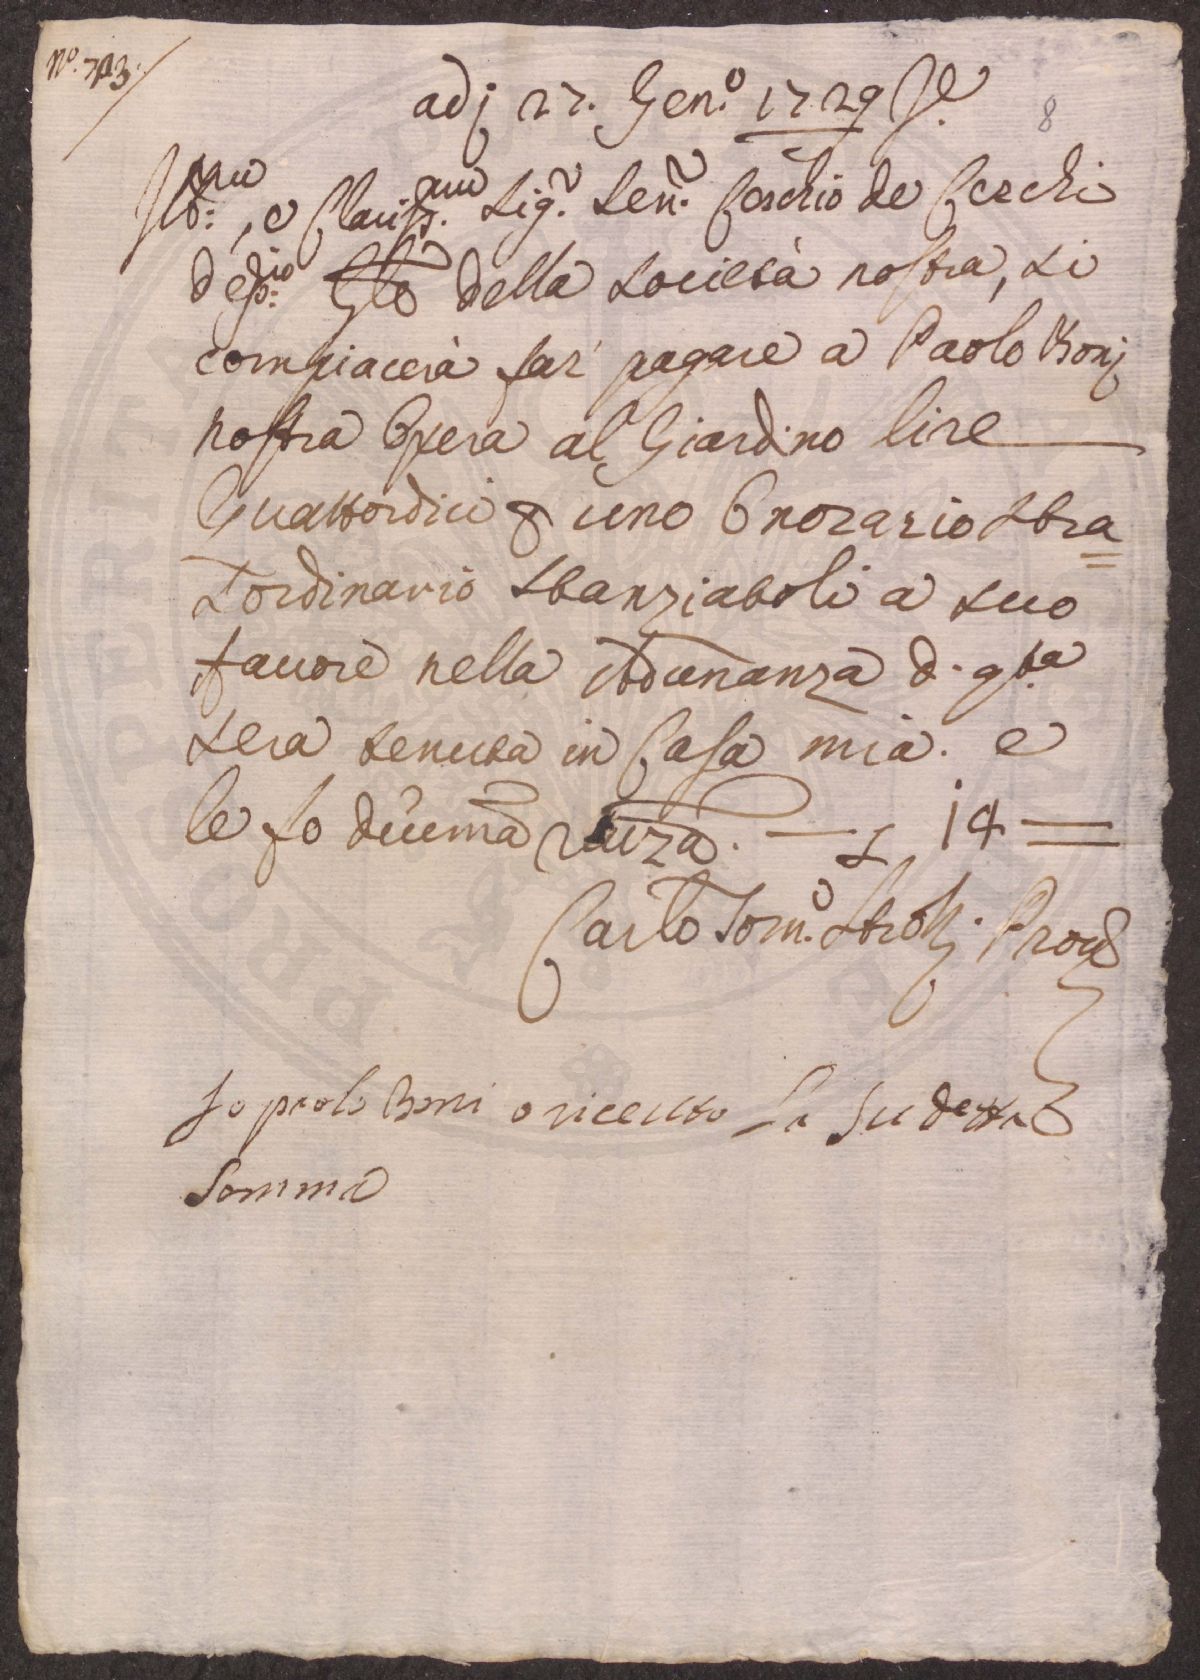 N.º 713.
adj 27. Gen.º 1729
8
Ill:mo, e Clariss.mo Sig.r Sen.r Cerchio de Cerchi
dep:rio della Società nostra, si
compiacerà far' pagare a Paolo Bonj
nostra Opera al Giardino lire
Quattordici uno Onorario stra
Lordinario stanziatoli a suo
favore nella Adunanza d. q.ta
sera tenuta in Casa mia. e
le fo — 14 =
Carlo Tom.º Strozzj
Io paolo Boni o riceuto la Sudetta
Somma
PROSPERITAS